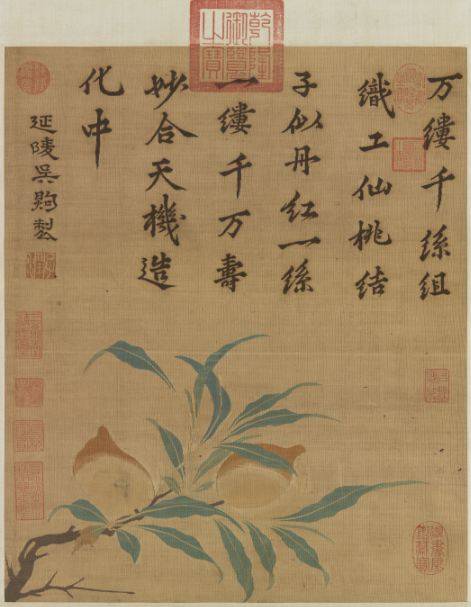 乾隆御覽之寶
万縷千絲組
織工仙桃結
子似丹紅一絲
一縷千万壽
妙合天機造
化中
延陵吳煦製